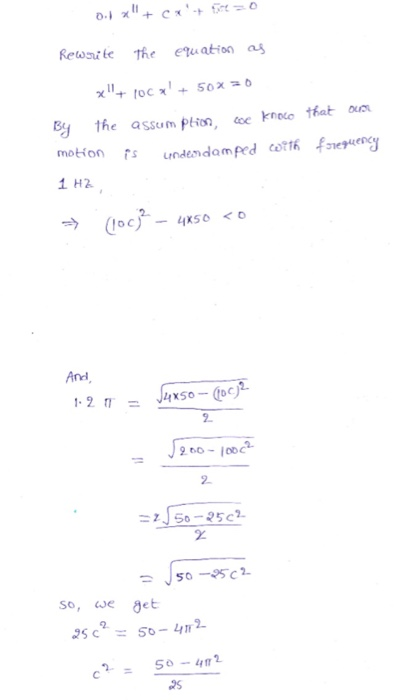 0.1 x'' + cx' + 5x = 0
Rewrite the equation as
x'' + 10c x' + 50x = 0
By the assumption, we know that our
motion is underdamped with frequency
1 HZ,
⇒ (10c)² - 4x50 < 0
And,
1.2 π = √(4x50 - (10c)²) / 2
= √(200 - 100c²) / 2
= 2√(50 - 25c²) / 2
= √(50 - 25c²)
so, we get
25c² = 50 - 4π²
c² = (50 - 4π²) / 25